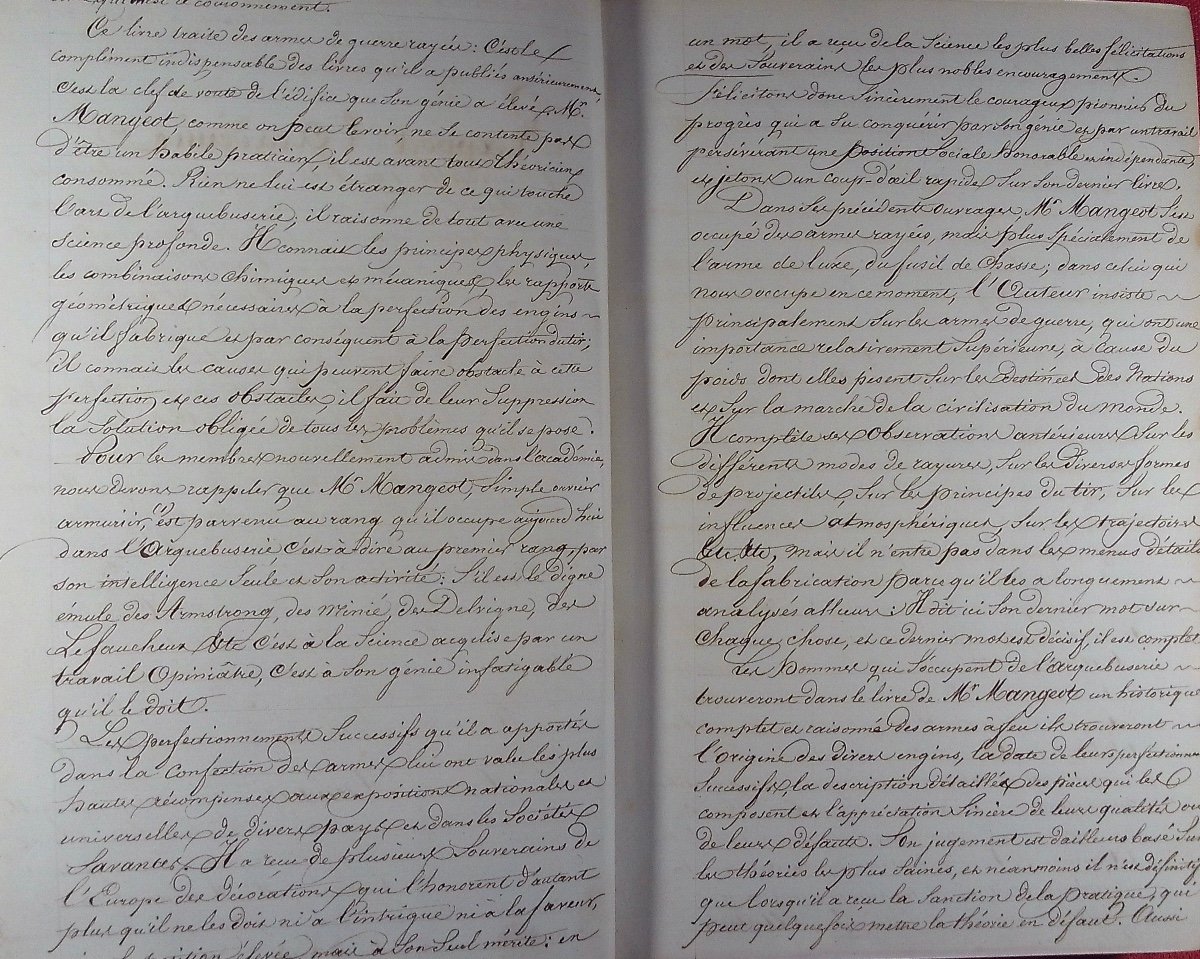 couronnement.
Ce livre traite des armes de guerre rayées : C'est le
complément indispensable des livres qu'il a publiés antérieurement
C'est la clef de voute de l'édifice que son génie a élevé. Mr.
Mangeot, comme on peut le voir, ne se contente pas
d'être un habile praticien, il est avant tout théoricien
consommé. Rien ne lui est étranger de ce qui touche
l'art de l'arquebuserie; il raisonne de tout avec une
science profonde. Il connait les principes physiques,
les combinaisons chimiques et mécaniques, les rapports
géométriques nécessaires à la perfection des engins ~
qu'il fabrique et par conséquent à la perfection du tir;
Il connait les causes qui peuvent faire obstacle à cette
perfection et ces obstacles, il fait de leur suppression
la solution obligée de tous les problèmes qu'il se pose.
Pour les membres nouvellement admis dans l'académie,
nous devons rappeler que Mr Mangeot, simple ouvrier
armurier, est parvenu au rang qu'il occupe aujourd'hui
dans l'Arquebuserie c'est à dire au premier rang, par
son intelligence seule et son activité : S'il est le digne
émule des Armstrong, des Minié, des Delvigne, des
Lefaucheux &tc c'est à la Science acquise par un
travail Opiniâtre, C'est à son génie infatigable
qu'il le doit.
Les perfectionnements Successifs qu'il a apportés
dans la Confection des armes lui ont valu les plus
hautes récompenses aux expositions nationales et
universelles de divers pays et dans les Sociétés
Savantes. Il a reçu de plusieurs Souverains de
l'Europe des décorations qui l'honorent d'autant
plus qu'il ne les doit ni à l'intrigue ni à la faveur,
élevée mais à son seul mérite : en
un mot, il a reçu de la Science les plus belles félicitations
et des Souverains les plus nobles encouragements.
Félicitons donc sincèrement le courageux pionnier du
progrès qui a su conquérir par son génie et par un travail
persévérant une position sociale honorable et indépendante,
et jetons un coup-d'œil rapide sur son dernier livre.
Dans ses précédents ouvrages, Mr Mangeot s'est
occupé des armes rayées, mais plus spécialement de
l'arme de luxe, du fusil de chasse; dans celui qui
nous occupe en ce moment, l'Auteur insiste ~
principalement sur les armes de guerre, qui ont une
importance relativement supérieure, à cause du
poids dont elles pèsent sur les destinées des Nations
et sur la marche de la civilisation du monde.
Il complète ses Observations antérieures sur les
différents modes de rayures, sur les diverses formes
de projectiles sur les principes du tir, sur les
influences atmosphériques, sur les trajectoires
&tc. &tc, mais il n'entre pas dans les menus détails
de la fabrication parce qu'il les a longuement ~
analysés ailleurs : Il dit ici son dernier mot sur ~
Chaque chose, et ce dernier mot est décisif, il est complet
Les hommes qui s'occupent de l'arquebuserie ~
trouveront dans le livre de Mr Mangeot un historique
complet et raisonné des armes à feu ils trouveront ~
l'origine des divers engins, la date de leurs perfectionnem
Successifs la description détaillée des pièces qui les
composent et l'appréciation sincère de leurs qualités ou
de leurs défauts. Son jugement est d'ailleurs basé sur
les théories les plus saines, et néanmoins il n'est définitif
que lorsqu'il a reçu la sanction de la pratique, qui
peut quelquefois mettre la théorie en défaut. Aussi